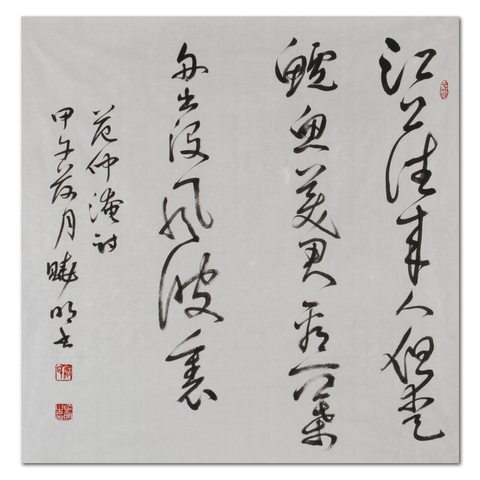 江上往来人但爱
鲈鱼美君看一叶
舟出没风波里
范仲淹诗
甲午月晓明书